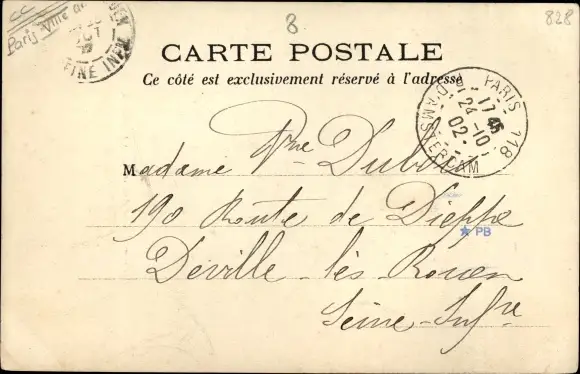 Paris Ville
8
828
CARTE POSTALE
Ce côté est exclusivement réservé à l'adresse
PARIS 118
R. D'AMSTERDAM
17 45
24 -10
02
INFRE
Madame Vve Dubosc
190 Route de Dieppe
PB
Déville-lès-Rouen
Seine-Infre